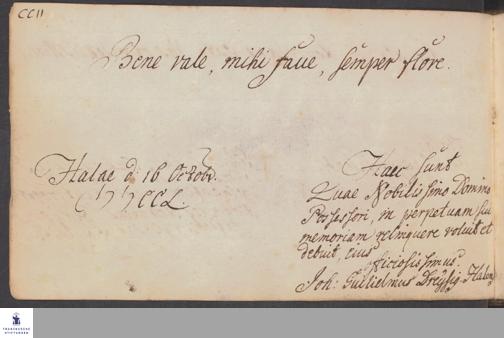 CCII
Bene vale, mihi faue, semper flore.
Halae d. 16 Octobr.
Haec sunt
Quae Nobilissimo Domino
Possessori, in perpetuam sui
memoriam relinquere voluit et
debuit, eius
Joh: Guilielmus Dreyssig. Halens
FRANCKESCHE
STIFTUNGEN